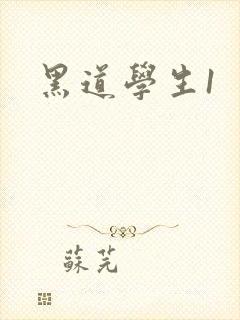 黑道學生1
蘇芫